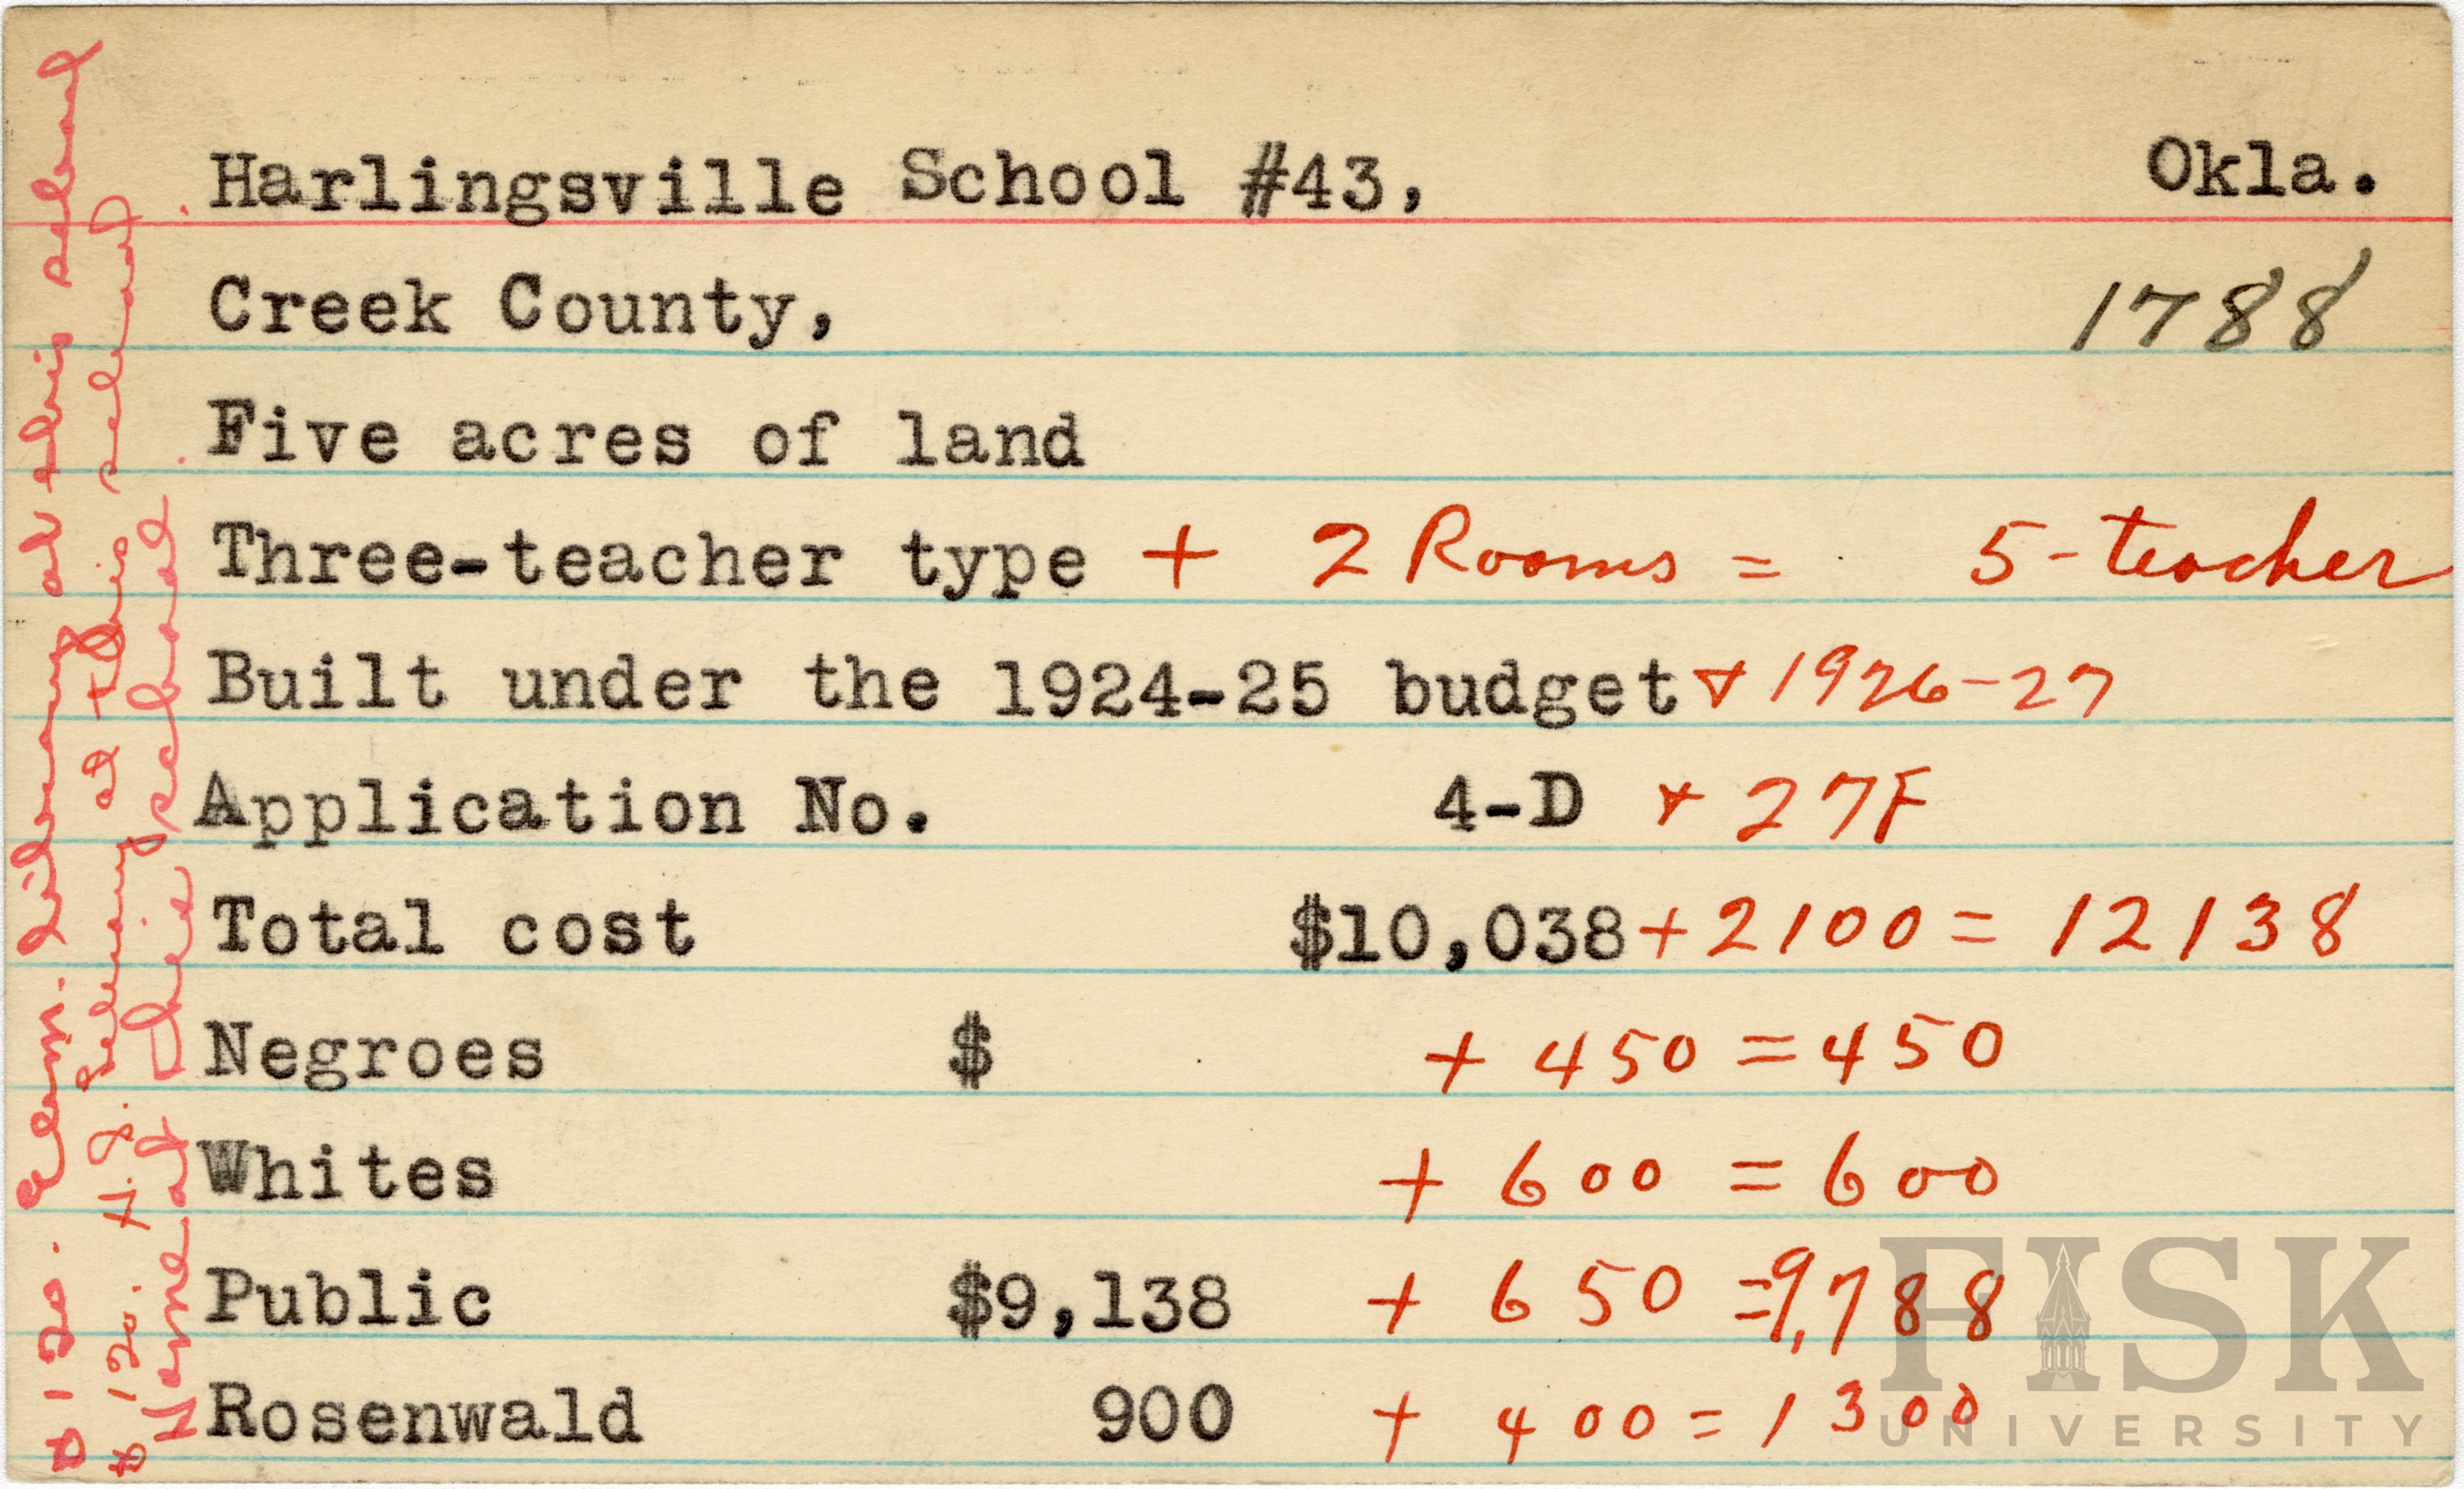 Harlingsville School #43, Okla.
Creek County, 1788
Five acres of land
Three-teacher type + 2 Rooms = 5-teacher
Built under the 1924-25 budget + 1926-27
Application No. 4-D + 27F
Total cost $10,038 + 2100 = 12138
Negroes $ + 450 = 450
Whites + 600 = 600
Public $9,138 + 650 = 9,788
Rosenwald 900 + 400 = 1300
$120. Elem. Library at this school
$120. H.S. Library at this school
Home at this school
FISK
UNIVERSITY